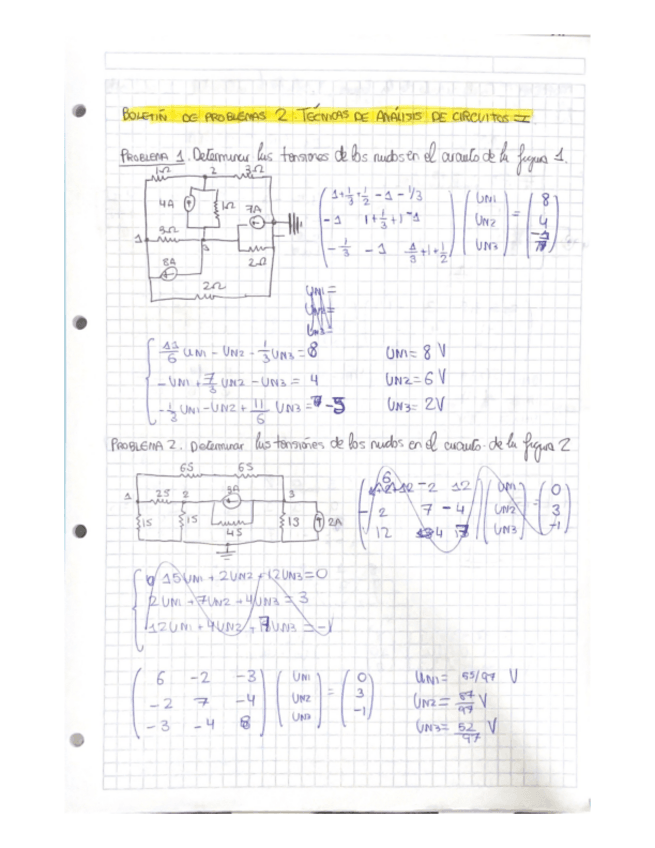 BOLETÍN DE PROBLEMAS 2. TÉCNICAS DE ANÁLISIS DE CIRCUITOS I
PROBLEMA 1. Determinar las tensiones de los nudos en el circuito de la figura 1.
1Ω 2 3Ω
4A 1Ω 7A
1 3Ω 3
8A 2Ω
2Ω
1+1/3+1/2 -1 -1/3
-1 1+1/3+1 -1
-1/3 -1 1/3+1+1/2
UN1
UN2
UN3
=
8
4
UN1=
UN2=
UN3=
11/6 UN1 - UN2 - 1/3 UN3 = 8 UN1= 8 V
-UN1 + 7/3 UN2 - UN3 = 4 UN2= 6 V
-1/3 UN1 - UN2 + 11/6 UN3 = -5 UN3= 2V
PROBLEMA 2. Determinar las tensiones de los nudos en el circuito de la figura 2
6S 6S
1 2S 2 3A 3
1S 1S 4S 1S 2A
-2 12
-2 7 -4
12
UN1
UN2
UN3
=
0
3
-1
15UN1 + 2UN2 + 12UN3 = 0
2UN1 + 7UN2 + 4UN3 = 3
12UN1 + 4UN2 + 7UN3 = -1
6 -2 -3
-2 7 -4
-3 -4 8
UN1
UN2
UN3
=
0
3
-1
UN1= 55/97 V
UN2= 87/97 V
UN3= 52/97 V